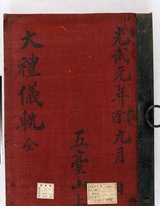 光武元年酉九月
五臺山上
大禮儀軌 全